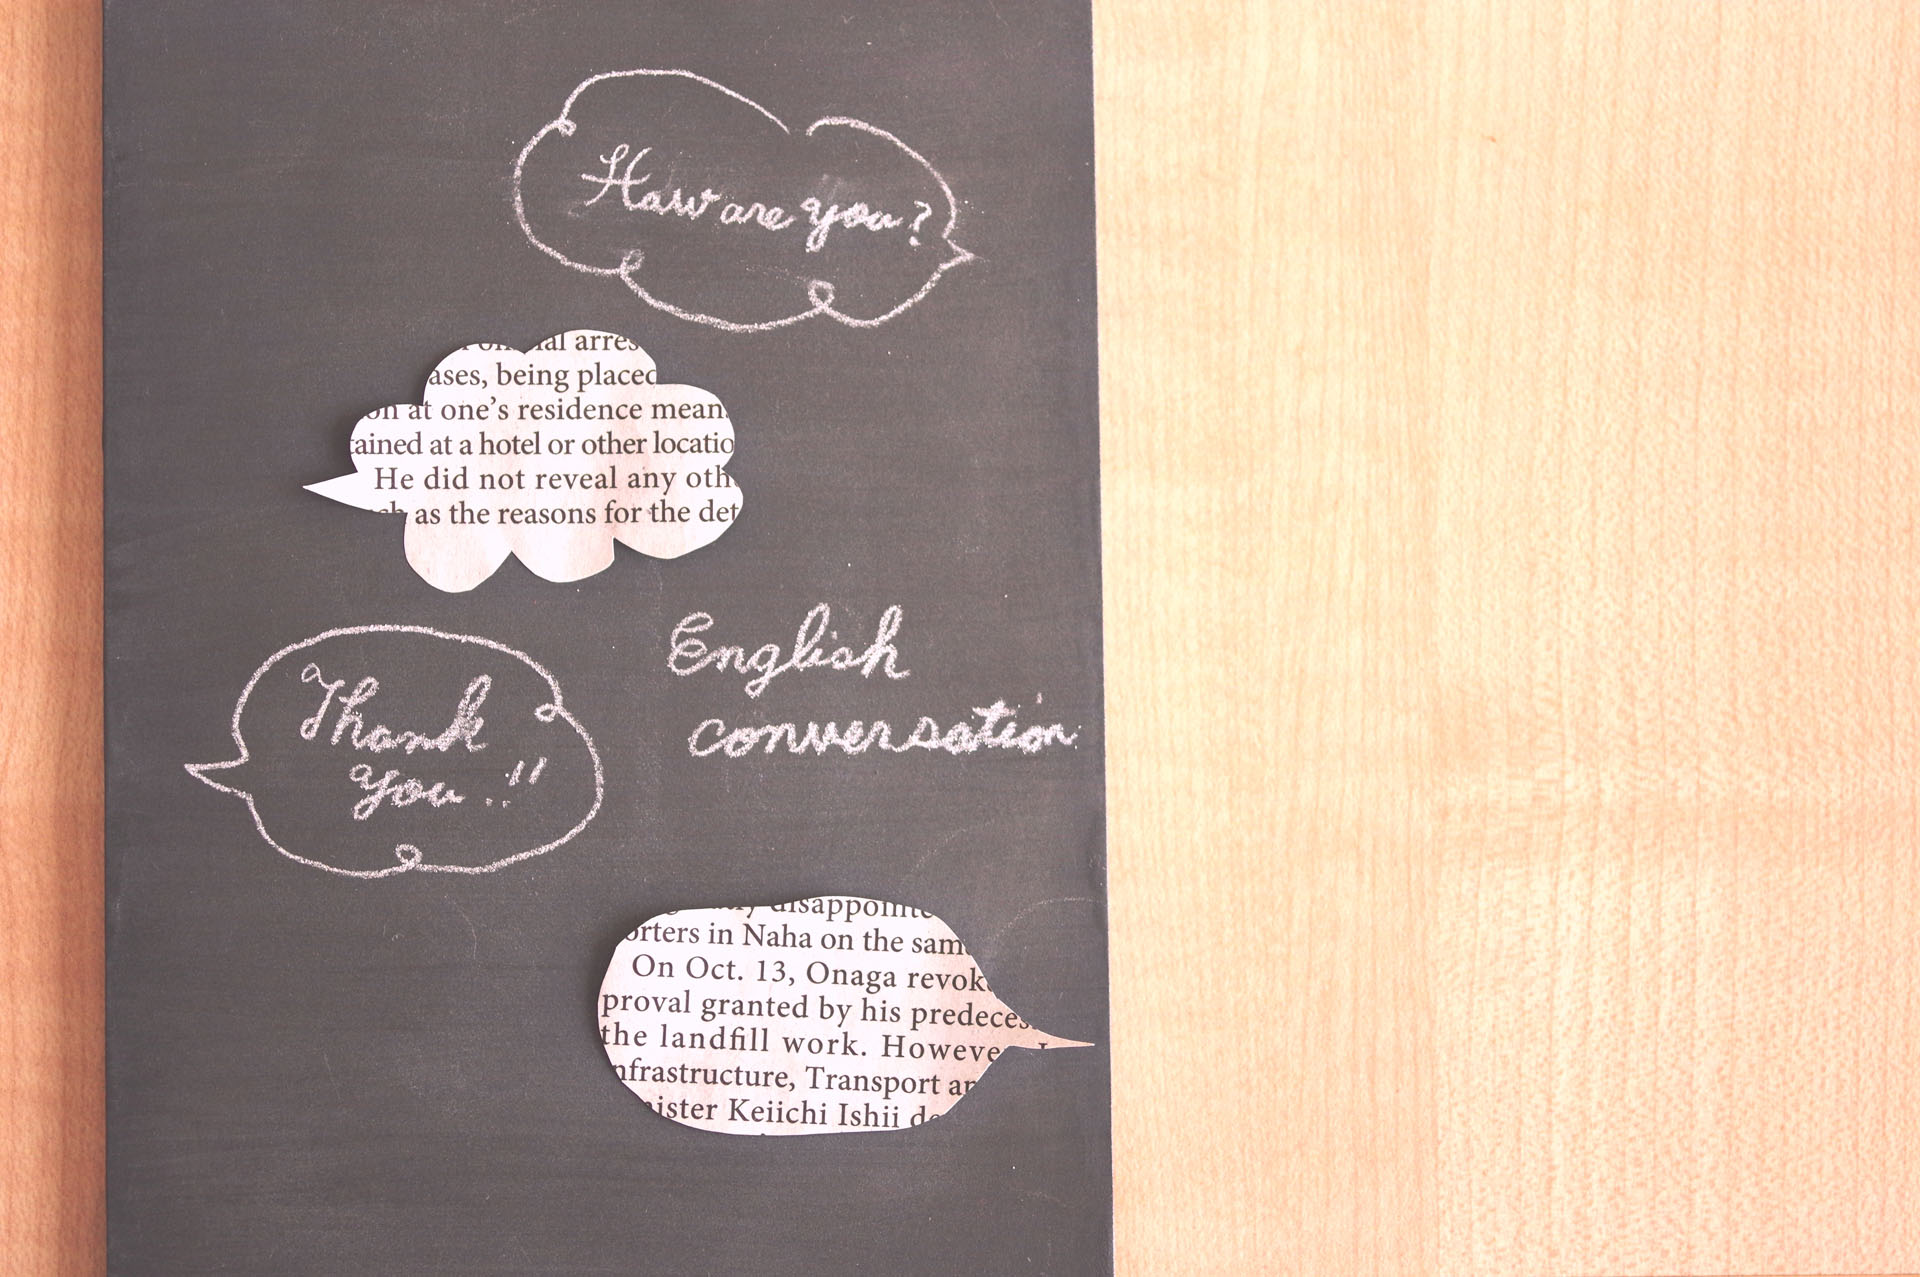 How are you?
arres
ases, being placed
on at one's residence mean
tained at a hotel or other locatio
He did not reveal any oth
as the reasons for the det
English
conversation
Thank
you!!
disappointe
orters in Naha on the same
On Oct. 13, Onaga revok
proval granted by his predeces
the landfill work. Howeve
nfrastructure, Transport an
nister Keiichi Ishii de